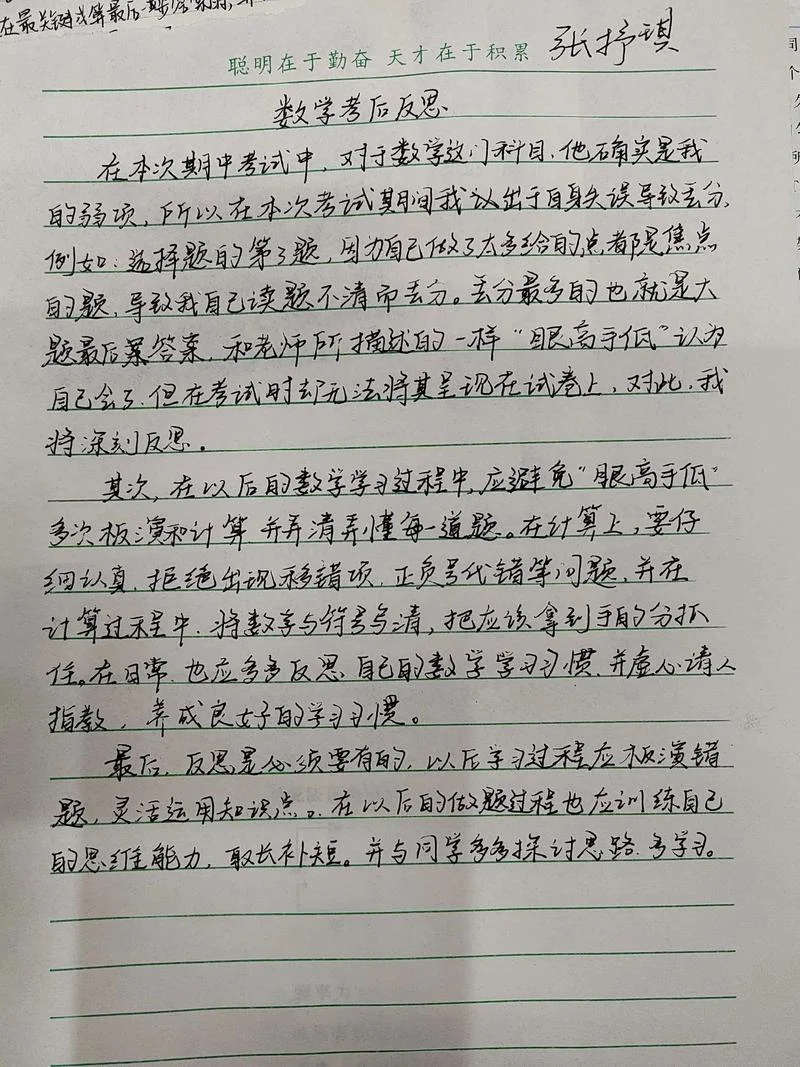 在最关键或算最后一步
聪明在于勤奋 天才在于积累 张抒琪
数学考后反思
在本次期中考试中,对于数学这门科目,他确实是我
的弱项,所以在本次考试期间我认出于自身失误导致丢分,
例如:选择题的第3题,因为自己做了太多给的点都是焦点
的题,导致我自己读题不清而丢分。丢分最多的也就是大
题最后某答案,和老师所描述的一样“眼高手低”认为
自己会了,但在考试时却无法将其呈现在试卷上,对此,我
将深刻反思。
其次,在以后的数学学习过程中,应避免“眼高手低”
多次板演和计算 并弄清弄懂每一道题。在计算上,要仔
细认真,拒绝出现移错项,正负号代错等问题,并在
计算过程中,将数字与符号写清,把应该拿到手的分抓
住。在日常,也应多多反思 自己的数学学习习惯,并虚心请人
指教,养成良好的学习习惯。
最后,反思是必须要有的,以后学习过程应板演错
题,灵活运用知识点。在以后的做题过程也应训练自己
的思维能力,取长补短。并与同学多多探讨思路,多学习。
同
个